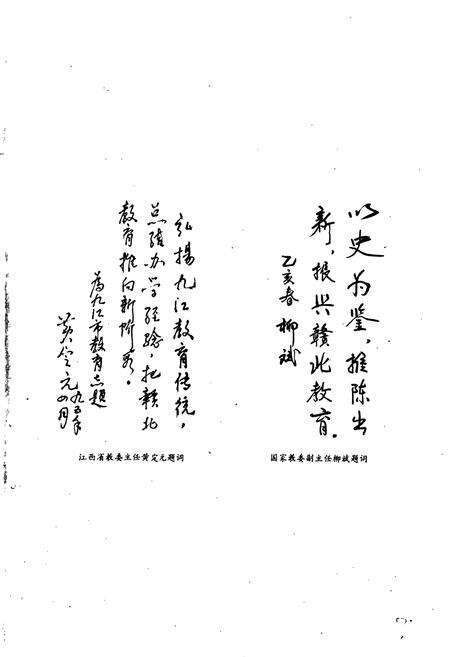 以史为鉴，推陈出
新，振兴赣北教育。
乙亥春 柳斌
国家教委副主任柳斌题词
弘揚九江教育传统，
总结办学经验，把赣北
教育推向新阶段。
为九江市教育志题
黄定元 九五年
四月
江西省教委主任黄定元题词